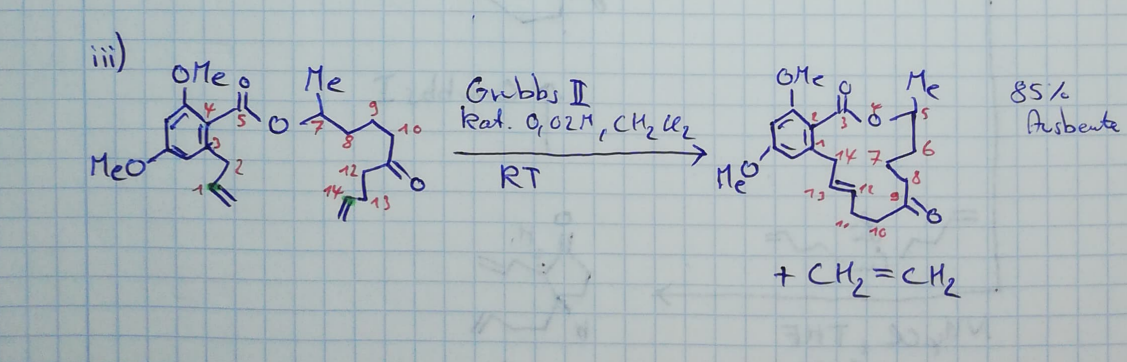 iii)
OMe
O
Me
4
5
O
7
9
8
10
3
MeO
2
1
12
O
14
13
Grubbs II
kat. 0,02M, CH2Cl2
RT
OMe
O
Me
2
3
O
4
5
1
6
MeO
14
7
8
13
12
9
O
11
10
+ CH2=CH2
85%
Ausbeute